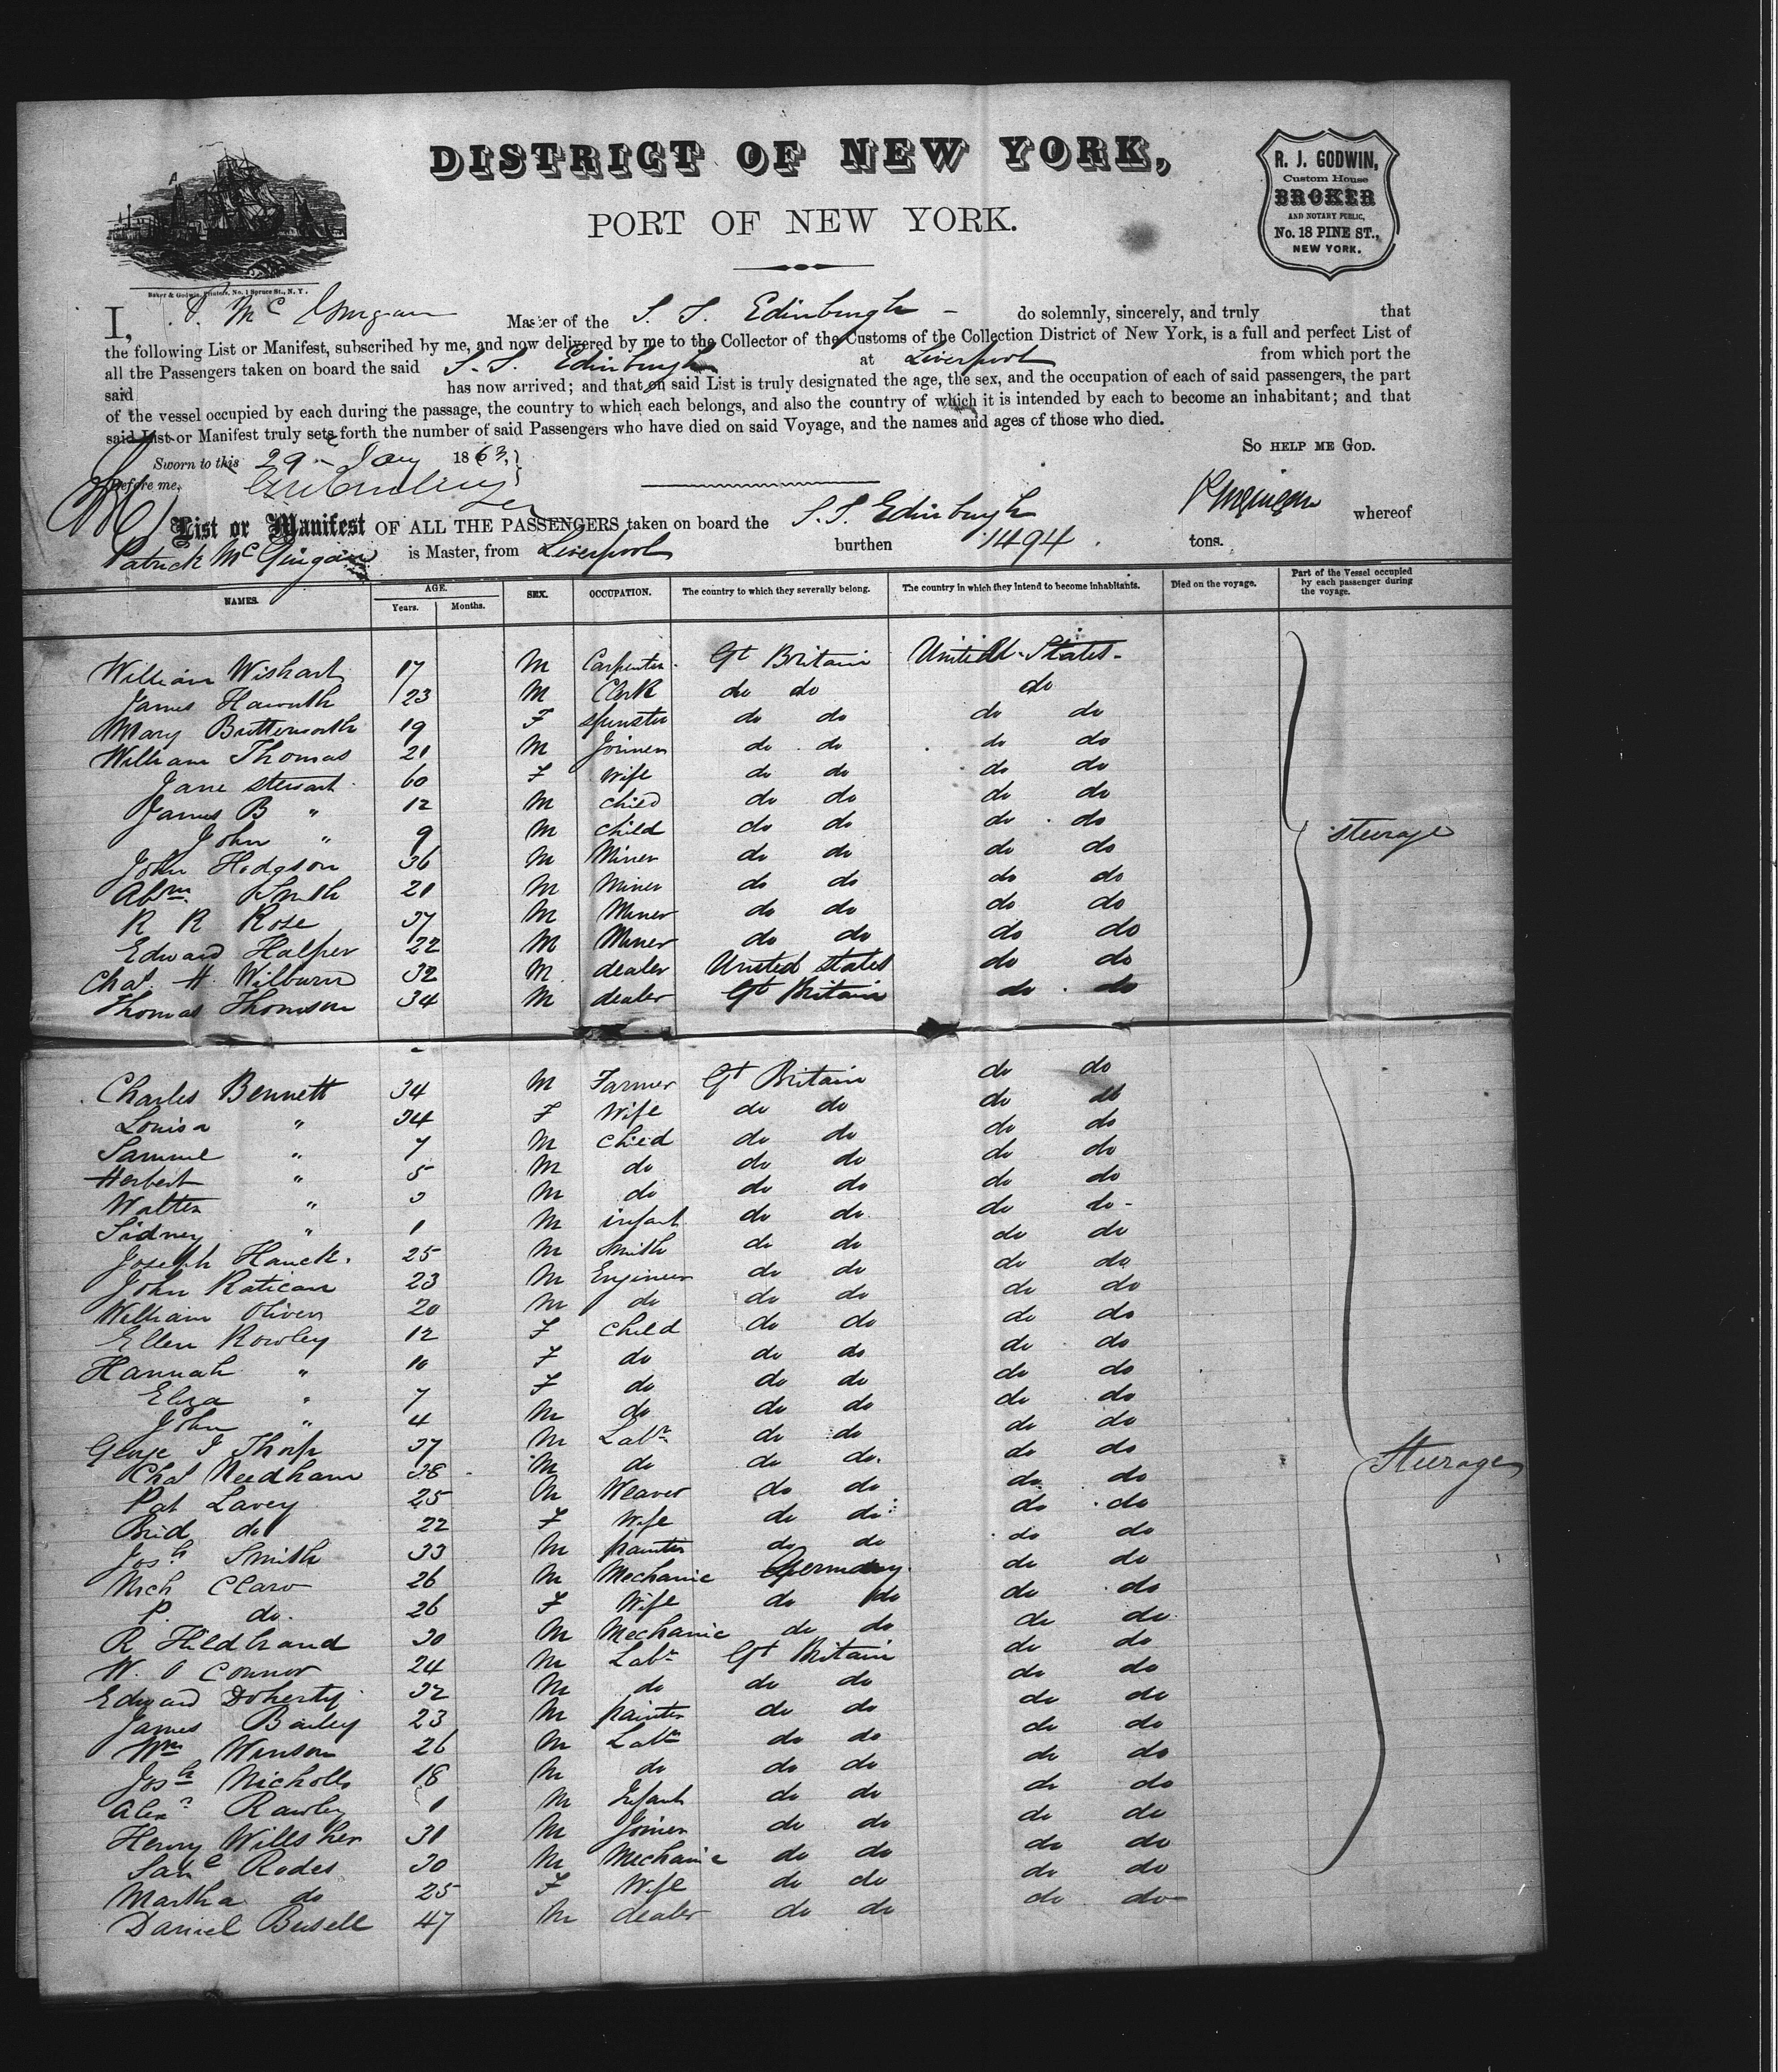 DISTRICT OF NEW YORK,
PORT OF NEW YORK.
R. J. GODWIN,
Custom House
BROKER
AND NOTARY PUBLIC,
No. 18 PINE ST.,
NEW YORK.
Baker & Godwin, Printers, No. 1 Spruce St., N. Y.
I, P. Mc Master of the S. S. Edinburgh do solemnly, sincerely, and truly that
the following List or Manifest, subscribed by me, and now delivered by me to the Collector of the Customs of the Collection District of New York, is a full and perfect List of
all the Passengers taken on board the said S. S. Edinburgh at Liverpool from which port the
said has now arrived; and that on said List is truly designated the age, the sex, and the occupation of each of said passengers, the part
of the vessel occupied by each during the passage, the country to which each belongs, and also the country of which it is intended by each to become an inhabitant; and that
said List or Manifest truly sets forth the number of said Passengers who have died on said Voyage, and the names and ages of those who died.
So HELP ME GOD.
Sworn to this 29 - Jany 1863,
Before me,
List or Manifest OF ALL THE PASSENGERS taken on board the S. S. Edinburgh whereof
Patrick Mc is Master, from Liverpool burthen 1494 tons.
NAMES. AGE. Years. Months. SEX. OCCUPATION. The country to which they severally belong. The country in which they intend to become inhabitants. Died on the voyage. Part of the Vessel occupied by each passenger during the voyage.
William Wishart 17 M Carpenter Gt Britain United States
James Haworth 23 M Clerk do do do
Mary Butterworth 19 F spinster do do do do
William Thomas 21 M Joiner do do do do
Jane Stewart 60 F wife do do do do
James B " 12 M child do do do do
John " 9 M child do do do do steerage
John Hodgson 36 M Miner do do do do
Abm Smith 21 M Miner do do do do
R R Rose 37 M Miner do do do do
Edward Halper 22 M Miner do do do do
Chas. H. Wilburn 32 M dealer United States do do
Thomas Thomson 34 M dealer Gt Britain do do
Charles Bennett 34 M Farmer Gt Britain do do
Louisa " 34 F Wife do do do do
Samuel " 7 M child do do do do
Herbert " 5 M do do do do do
Walter " 3 M do do do do do
Sidney " 1 M infant do do do do
Joseph Hauck. 25 M Smith do do do do
John Ratican 23 M Engineer do do do do
William Oliver 20 M do do do do do
Ellen Rowley 12 F child do do do do
Hannah " 10 F do do do do do
Eliza " 7 F do do do do do
John " 4 M do do do do do
George J Thorp 37 M Labr do do do do
Chas Needham 38 M do do do do do Steerage
Pat Lavey 25 M Weaver do do do do
Brid do 22 F Wife do do do do
Josh Smith 33 M painter do do do do
Mich Claro 26 M Mechanic Germany do do
P. do. 26 F Wife do do do do
R Hildbrand 30 M Mechanic do do do do
W. O Connor 24 M Labr Gt Britain do do
Edward Doherty 32 M do do do do do
James Bailey 23 M painter do do do do
Wm Winson 26 M Labr do do do do
Josh Nicholls 18 M do do do do do
Alexr Rawley 1 M Infant do do do do
Henry Willsher 31 M Joiner do do do do
Saml Rodes 30 M Mechanic do do do do
Martha do 25 F Wife do do do do
Daniel Busell 47 M dealer do do do do